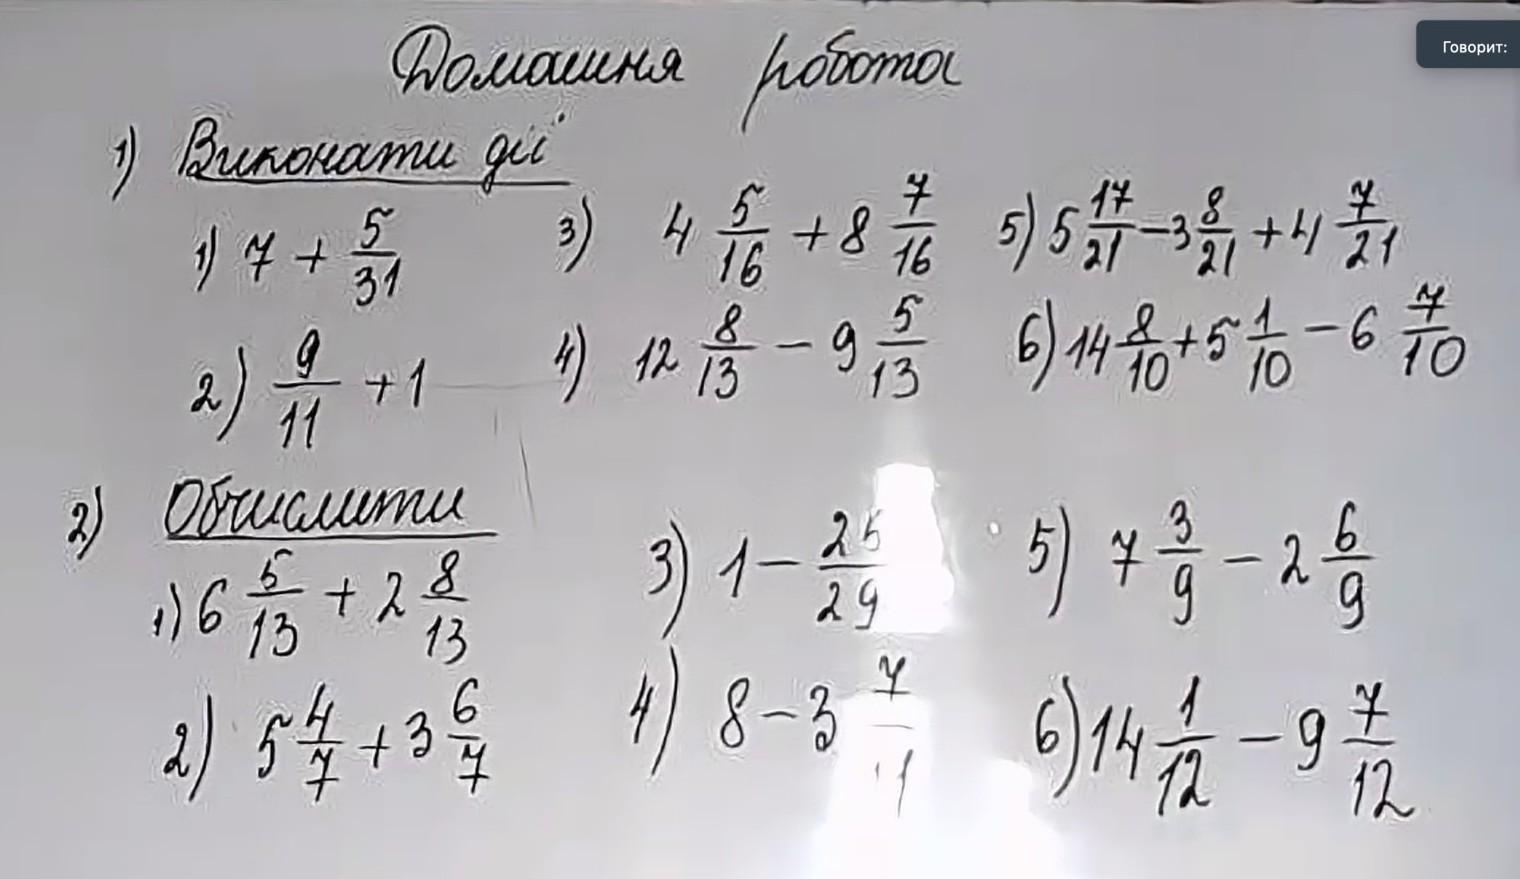 Говорит:
Домашня робота
1) Виконати дії
1) 7 + 5/31
2) 9/11 + 1
3) 4 5/16 + 8 7/16
4) 12 8/13 − 9 5/13
5) 5 17/21 − 3 8/21 + 4 7/21
6) 14 8/10 + 5 1/10 − 6 7/10
2) Обчислити
1) 6 5/13 + 2 8/13
2) 5 4/7 + 3 6/7
3) 1 − 25/29
4) 8 − 3 7/11
5) 7 3/9 − 2 6/9
6) 14 1/12 − 9 7/12